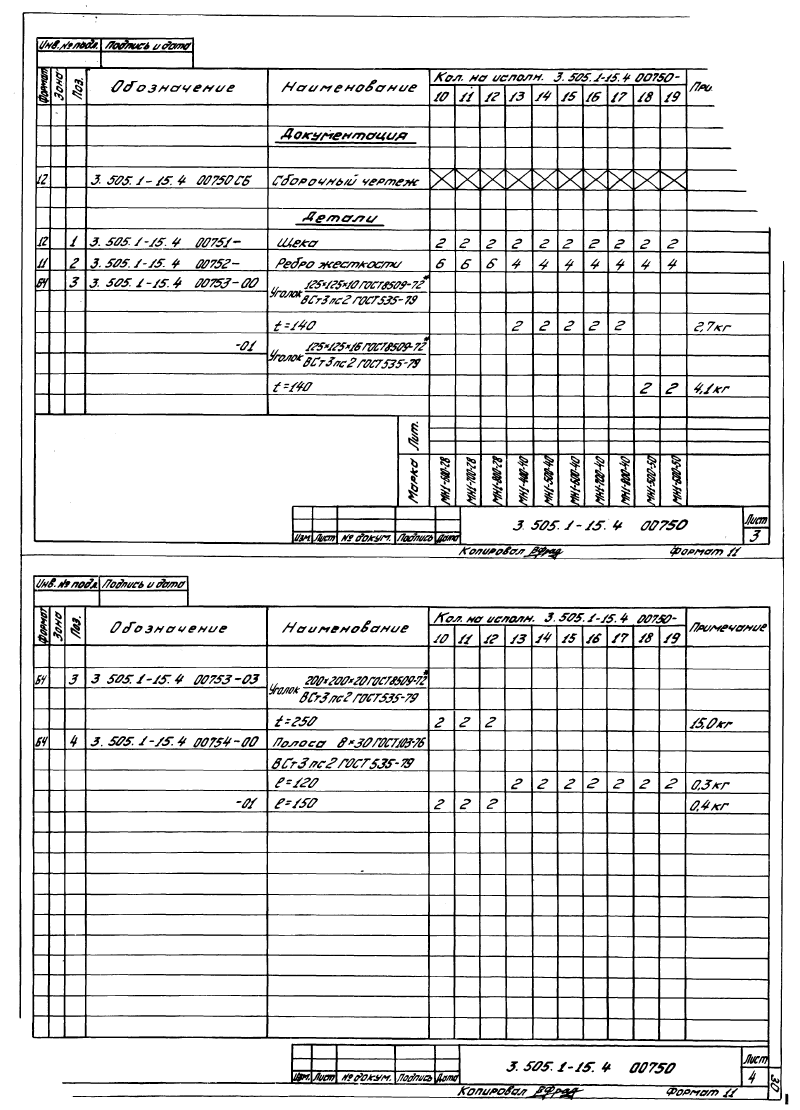 Инв. № подл. Подпись и дата
Формат Зона Поз. Обозначение Наименование Кол. на исполн. 3.505.1-15.4 00750- При
10 11 12 13 14 15 16 17 18 19
Документация
12 3.505.1-15.4 00750 СБ Сборочный чертеж
Детали
12 1 3.505.1-15.4 00751- Щека 2 2 2 2 2 2 2 2 2 2
11 2 3.505.1-15.4 00752- Ребро жесткости 6 6 6 4 4 4 4 4 4 4
БЧ 3 3.505.1-15.4 00753-00 Уголок 125×125×10 ГОСТ 8509-72*
ВСт3пс2 ГОСТ 535-79
t=140 2 2 2 2 2 2,7кг
-01 Уголок 125×125×16 ГОСТ 8509-72*
ВСт3пс2 ГОСТ 535-79
t=140 2 2 4,1кг
Лит.
Марка МН1-600-28 МН1-700-28 МН1-800-28 МН1-400-40 МН1-500-40 МН1-600-40 МН1-700-40 МН1-800-40 МН1-500-50 МН1-600-50
3.505.1-15.4 00750 Лист
3
Изм. Лист № докум. Подпись Дата
Копировал Формат 11
Инв. № подл. Подпись и дата
Формат Зона Поз. Обозначение Наименование Кол. на исполн. 3.505.1-15.4 00750- Примечание
10 11 12 13 14 15 16 17 18 19
БЧ 3 3 505.1-15.4 00753-03 Уголок 200×200×20 ГОСТ 8509-72*
ВСт3пс2 ГОСТ 535-79
t=250 2 2 2 15,0кг
БЧ 4 3.505.1-15.4 00754-00 Полоса 8×30 ГОСТ 103-76
ВСт3пс2 ГОСТ 535-79
ℓ=120 2 2 2 2 2 2 2 0,3кг
-01 ℓ=150 2 2 2 0,4кг
3.505.1-15.4 00750 Лист
4
Изм. Лист № докум. Подпись Дата
Копировал Формат 11
30